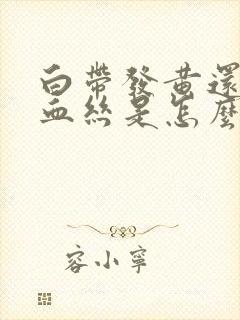 白帶發黃還
血絲是怎麼
容小寧